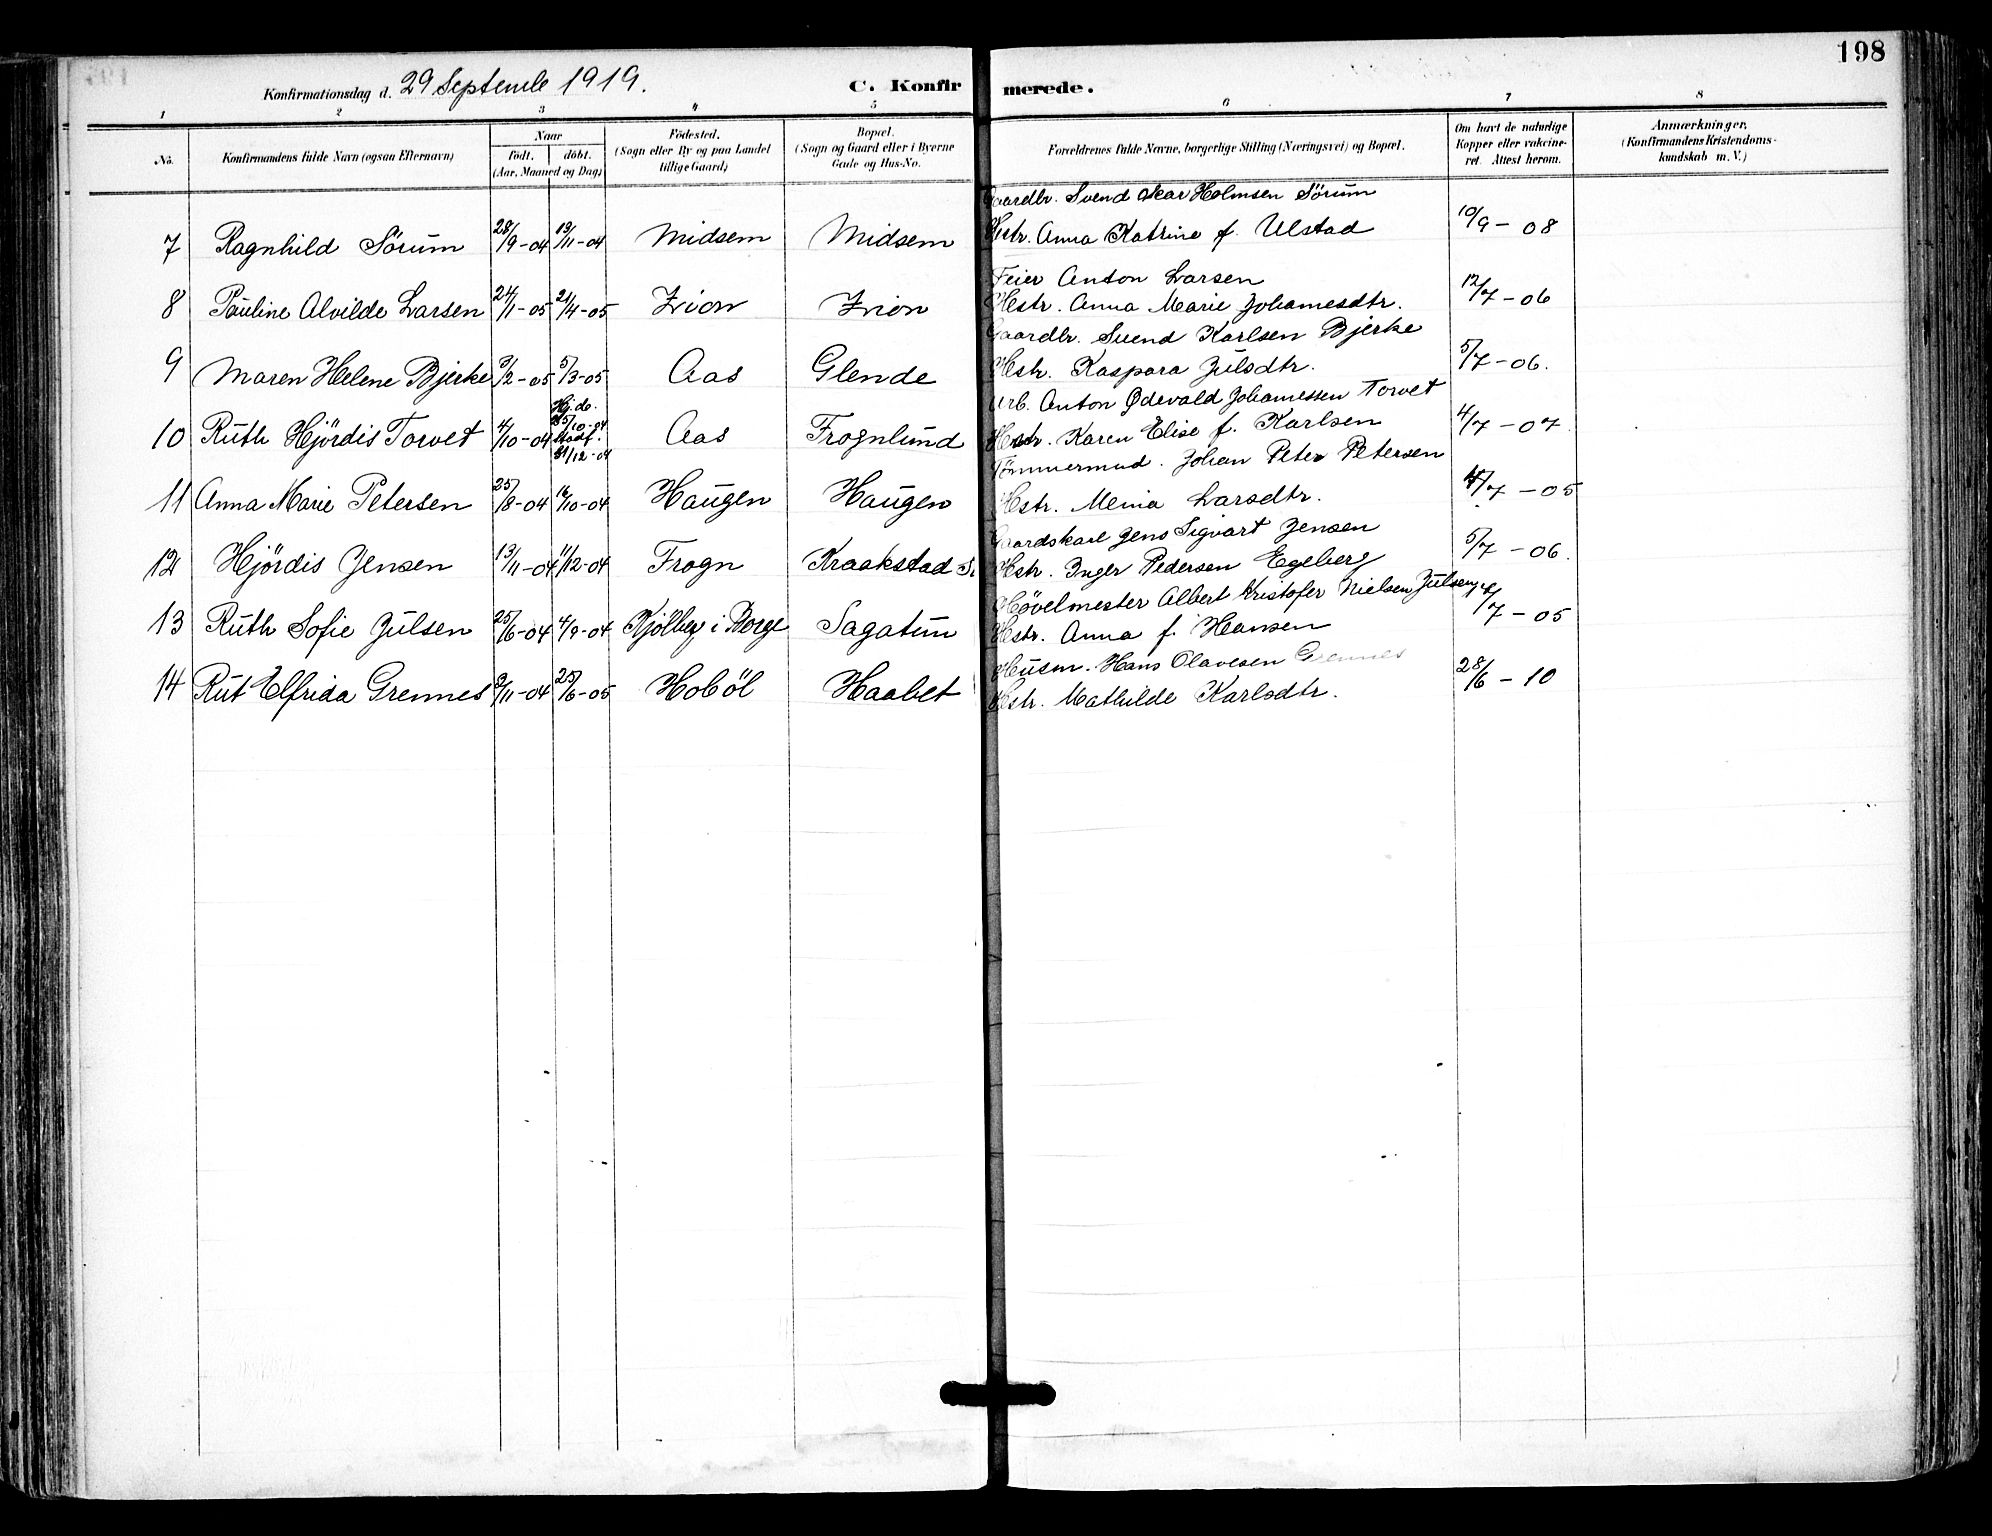 198
Konfirmationsdag d. 29 Septembe 1919.
C. Konfirmerede.
1 2 3 4 5 6 7 8
No. Konfirmandens fulde Navn (ogsaa Efternavn) Naar födt. döbt. (Aar, Maaned og Dag)
Födested. (Sogn eller By og paa Landet tillige Gaard)
Bopæl. (Sogn og Gaard eller i Byerne Gade og Hus-No.
Forældrenes fulde Navne, borgerlige Stilling (Næringsvei) og Bopæl.
Om havt de naturlige Kopper eller vakcineret. Attest herom.
Anmærkninger. (Konfirmandens Kristendomskundskab m. V.)
Gaardbr. Svend Holmsen Sörum
7 Ragnhild Sörum 28/9-04 13/11-04 Midsem Midsem Hstr. Anna Katrine f. Ulstad 10/9-08
Feier Anton Larsen
8 Pauline Alvilde Larsen 24/1-05 21/4-05 Zion Zion Hstr. Anna Marie Johannesdtr. 12/7-06
Gaardbr. Svend Karlsen Bjerke
9 Maren Helene Bjerke 3/2-05 5/3-05 Aas Glende Hstr. Kaspara Julsdtr. 5/7-06.
Arb. Anton Ødevald Johannessen Torvet
10 Ruth Hjördis Torvet 4/10-04 Hj.do. 25/10-04 Stadf. 31/12-04 Aas Frognlund Hstr. Karen Elise f. Karlsen 4/7-07.
Tömmermnd. Johan Peter Petersen
11 Anna Marie Petersen 25/8-04 16/10-04 Haugen Haugen Hstr. Menia Larsdtr. 4/7-05
Gaardskarl Jens Sigvart Jensen
12 Hjördis Jensen 13/11-04 11/12-04 Frogn Kraakstad Hstr. Inger Pedersen Egeberg 5/7-06.
Hövelmester Albert Kristofer Nielsen Julsen
13 Ruth Sofie Julsen 25/6-04 4/9-04 Kjölberg i Borge Sagatun Hstr. Anna f. Hansen 14/7-05
Husm. Hans Olavesen Grennes
14 Rut Elfrida Grennes 9/11-04 25/6-05 Hoböl Haabet Hstr. Mathilde Karlsdtr. 28/6-10